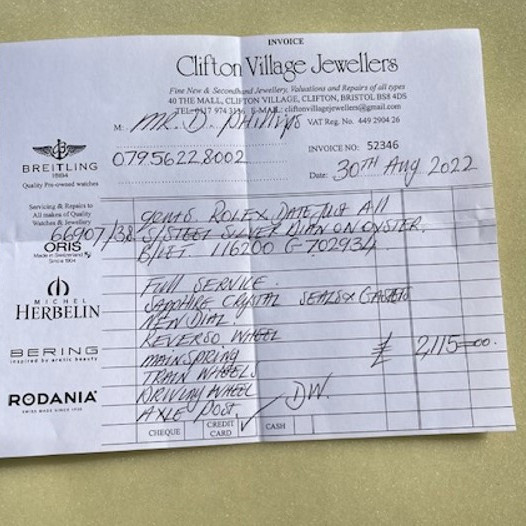 INVOICE
Clifton Village Jewellers
Fine New & Secondhand Jewellery, Valuations and Repairs of all types
40 THE MALL, CLIFTON VILLAGE, CLIFTON, BRISTOL BS8 4DS
TEL: 0117 974 E-MAIL: cliftonvillagejewellers@gmail.com
M: MR. D. Phillips VAT Reg. No. 449 2904 26
07956228002
INVOICE NO: 52346
Date: 30TH Aug 2022
BREITLING
1884
Quality Pre-owned watches
Servicing & Repairs to
All makes of Quality
Watches & Jewellery
66907/38
ORIS
Made in Switzerland
Since 1904
MICHEL
HERBELIN
BERING
inspired by arctic beauty
RODANIA
SWISS MADE SINCE 1930
GENTS ROLEX DATEJUST All
S/STEEL SILVER DIAL ON OYSTER
B/LET. 116200 G702934
FULL SERVICE
SAPPHIRE CRYSTAL SEALS & GASKETS
NEW DIAL.
REVERSO WHEEL
MAINSPRING £ 2,115=00.
TRAIN WHEELS
DRIVING WHEEL
AXLE POST. DW.
CHEQUE CREDIT CARD ✓ CASH